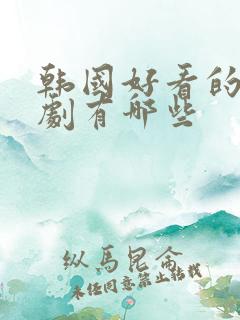 韩國好看的
劇有哪些
纵馬昆侖
未经同意禁止转载